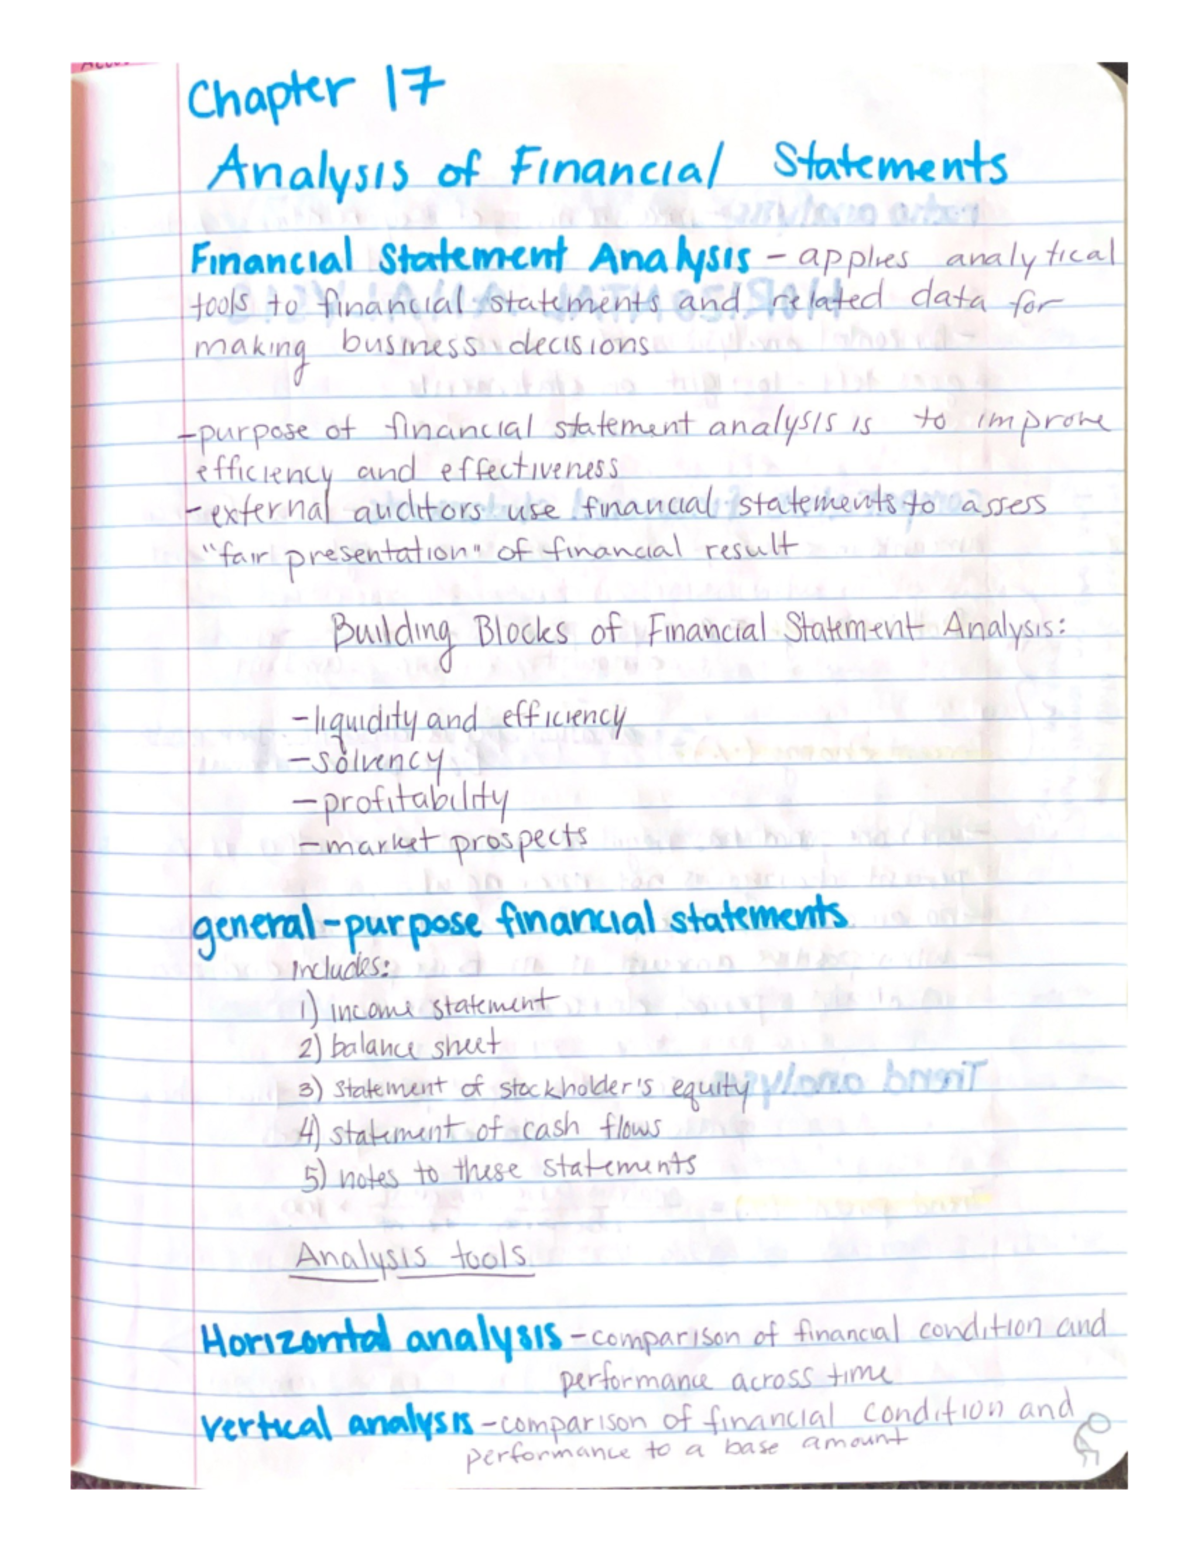 Chapter 17
Analysis of Financial Statements
Financial Statement Analysis - applies analytical
tools to financial statements and related data for
making business decisions
-purpose of financial statement analysis is to improve
efficiency and effectiveness
-external auditors use financial statements to assess
"fair presentation" of financial result
Building Blocks of Financial Statement Analysis:
-liquidity and efficiency
-solvency
-profitability
-market prospects
general-purpose financial statements
includes:
1) income statement
2) balance sheet
3) statement of stockholder's equity
4) statement of cash flows
5) notes to these statements
Analysis tools
Horizontal analysis -comparison of financial condition and
performance across time
vertical analysis -comparison of financial condition and
performance to a base amount